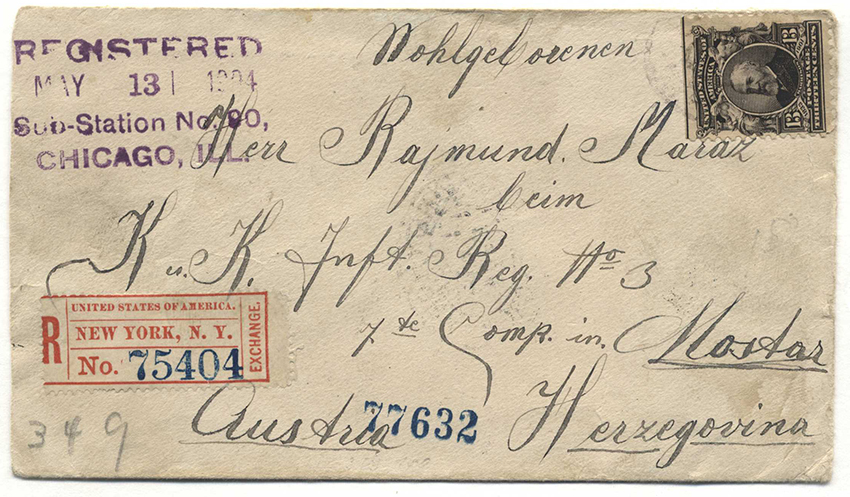 REGISTERED
MAY 13 1904
Sub-Station No. 90,
CHICAGO, ILL.
Wohlgeborenen
Herr Rajmund. Maraz
beim
K u. K. Inft. Reg. No 3
7 te Comp. in Mostar
Austria Herzegovina
UNITED STATES OF AMERICA.
R NEW YORK, N. Y.
No. 75404
EXCHANGE.
77632
349
UNITED STATES OF AMERICA
13 13
POSTAGE
THIRTEEN CENTS